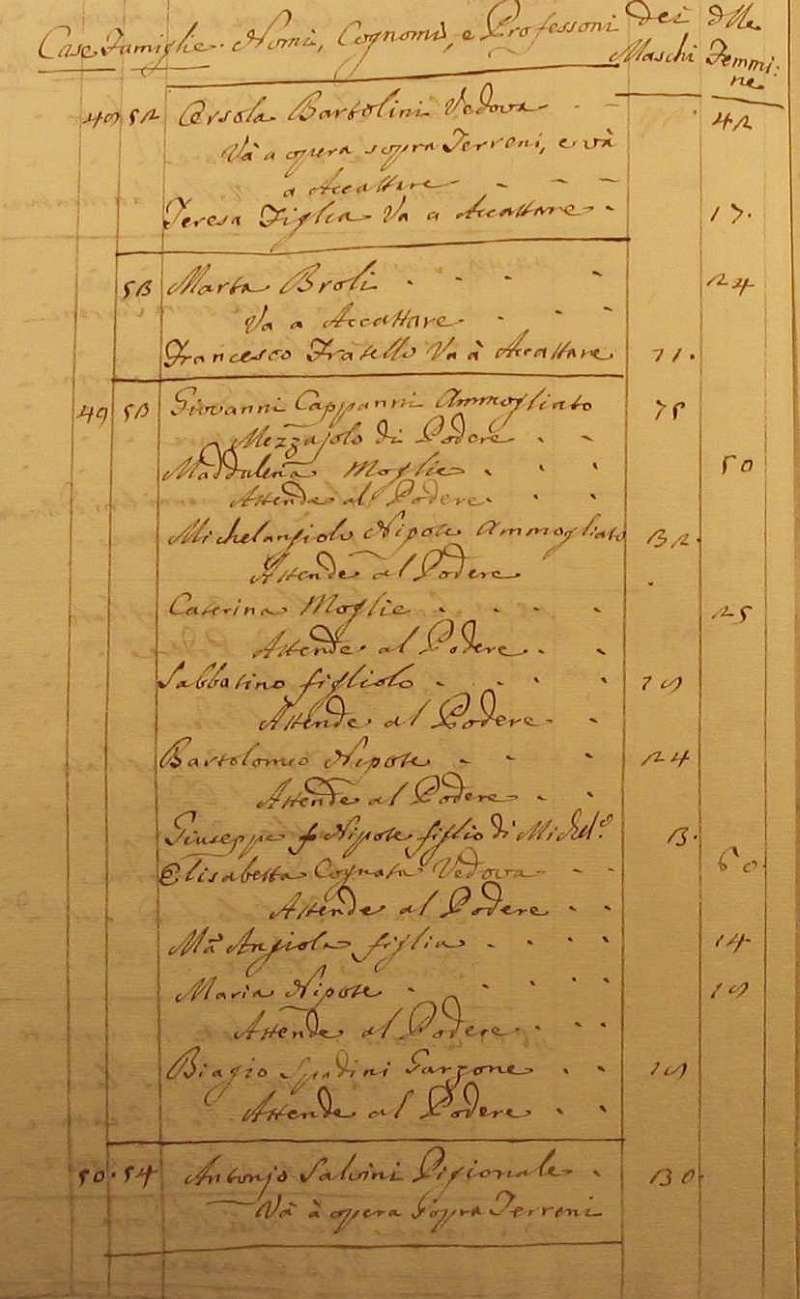 Case Famiglie. Nomi, Cognomi, e Professoni dei Maschi delle Femmine
49 52 Orsola Bartolini Vedova 42
Và a opera sopra Terreni, e và
a Accattare
Teresa Figlia Va a Accattare 17.
53 Marta Broli 24
Va a Accattare
Francesco Fratello Va à Accattare 11.
49 53 Giovanni Cappanni Ammogliato 75
Mezzajolo di Podere
Maddalena Moglie 50
Attende al Podere
Michelangiolo Nipote Ammogliato 32.
Attende al Podere
Caterina Moglie 25
Attende al Podere
Sabbatino figliolo 19
Attende al Podere
Bartolomeo Nipote 24
Attende al Podere
Giuseppe Nipote figlio di Michel.e 3.
Elisabetta Cognata Vedova 60.
Attende al Podere
Ma Angiola figlia 14
Maria Nipote 19
Attende al Podere
Biagio Spadini Garzone 19
Attende al Podere
50. 54 Antonjo Salvini Pigionale 30.
Và à opera sopra Terreni